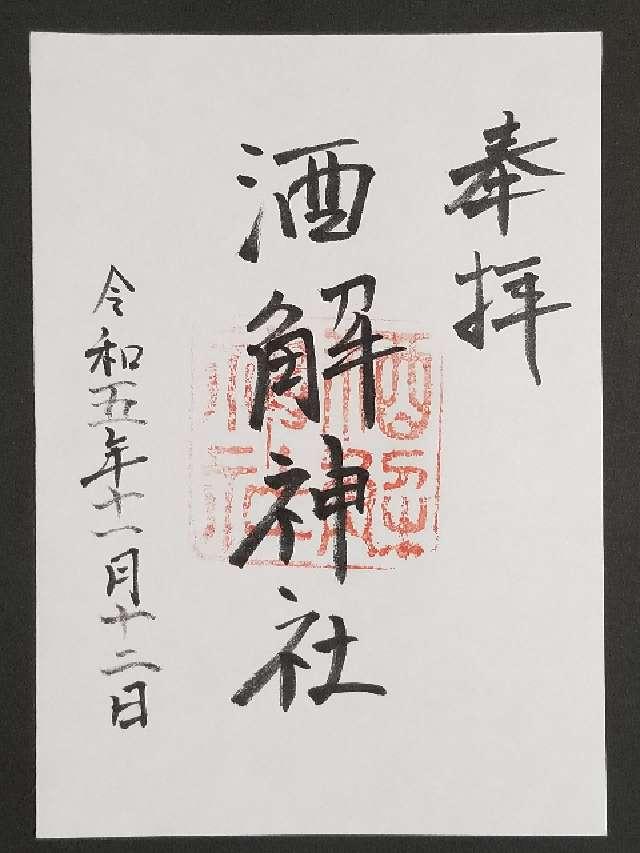 奉拝
酒解神社
令和五年十一月十二日